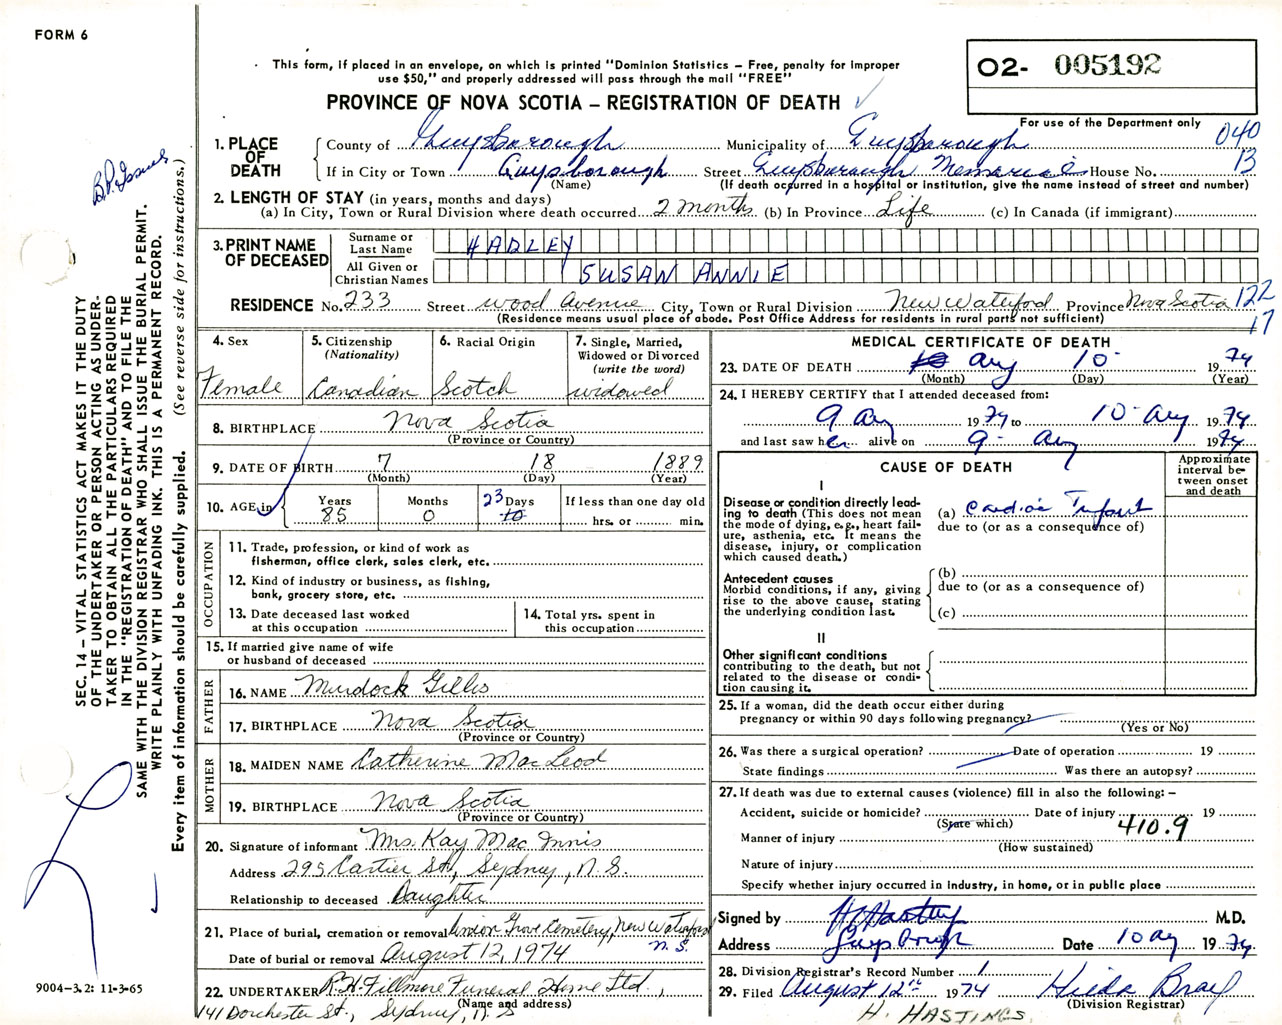 FORM 6
This form, if placed in an envelope, on which is printed "Dominion Statistics – Free, penalty for improper
use $50," and properly addressed will pass through the mail "FREE"
PROVINCE OF NOVA SCOTIA – REGISTRATION OF DEATH
O2- 005192
For use of the Department only
040
13
1. PLACE OF DEATH
County of Guysborough Municipality of Guysborough
If in City or Town Guysborough Street Guysborough Memorial House No.
(Name) (If death occurred in a hospital or institution, give the name instead of street and number)
2. LENGTH OF STAY (in years, months and days)
(a) In City, Town or Rural Division where death occurred 2 months (b) In Province Life (c) In Canada (if immigrant)
3. PRINT NAME OF DECEASED
Surname or Last Name HADLEY
All Given or Christian Names SUSAN ANNIE
RESIDENCE No. 233 Street Wood Avenue City, Town or Rural Division New Waterford Province Nova Scotia 122
(Residence means usual place of abode. Post Office Address for residents in rural parts not sufficient) 17
4. Sex
Female
5. Citizenship
(Nationality)
Canadian
6. Racial Origin
Scotch
7. Single, Married,
Widowed or Divorced
(write the word)
widowed
8. BIRTHPLACE Nova Scotia
(Province or Country)
9. DATE OF BIRTH 7 18 1889
(Month) (Day) (Year)
10. AGE in
Years 85
Months 0
23 Days 10
If less than one day old
hrs. or min.
OCCUPATION
11. Trade, profession, or kind of work as
fisherman, office clerk, sales clerk, etc.
12. Kind of industry or business, as fishing,
bank, grocery store, etc.
13. Date deceased last worked
at this occupation
14. Total yrs. spent in
this occupation
15. If married give name of wife
or husband of deceased
FATHER
16. NAME Murdock Gillis
17. BIRTHPLACE Nova Scotia
(Province or Country)
MOTHER
18. MAIDEN NAME Catherine MacLeod
19. BIRTHPLACE Nova Scotia
(Province or Country)
20. Signature of informant Mrs. Kay Mac Innis
Address 295 Cartier St., Sydney, N.S.
Relationship to deceased Daughter
21. Place of burial, cremation or removal Union Grove Cemetery, New Waterford
N.S.
Date of burial or removal August 12, 1974
22. UNDERTAKER R.H. Fillmore Funeral Home Ltd.,
(Name and address)
141 Dorchester St., Sydney, N.S
MEDICAL CERTIFICATE OF DEATH
23. DATE OF DEATH 10 Aug 10 1974
(Month) (Day) (Year)
24. I HEREBY CERTIFY that I attended deceased from:
9 Aug 1974 to 10 Aug 1974
and last saw her alive on 9 Aug 1974
CAUSE OF DEATH
Approximate
interval be-
tween onset
and death
I
Disease or condition directly lead-
ing to death (This does not mean
the mode of dying, e.g., heart fail-
ure, asthenia, etc. It means the
disease, injury, or complication
which caused death.)
(a) Cardiac Infarct
due to (or as a consequence of)
Antecedent causes
Morbid conditions, if any, giving
rise to the above cause, stating
the underlying condition last.
(b)
due to (or as a consequence of)
(c)
II
Other significant conditions
contributing to the death, but not
related to the disease or condi-
tion causing it.
25. If a woman, did the death occur either during
pregnancy or within 90 days following pregnancy?
(Yes or No)
26. Was there a surgical operation? Date of operation 19
State findings Was there an autopsy?
27. If death was due to external causes (violence) fill in also the following: –
Accident, suicide or homicide? Date of injury 19
(State which) 410.9
Manner of injury
(How sustained)
Nature of injury
Specify whether injury occurred in industry, in home, or in public place
Signed by H Hastings M.D.
Address Guysborough Date 10 Aug 1974
28. Division Registrar's Record Number 1
29. Filed August 12th 1974 Hilda Bray
(Division Registrar)
H. HASTINGS.
SEC. 14 – VITAL STATISTICS ACT MAKES IT THE DUTY
OF THE UNDERTAKER OR PERSON ACTING AS UNDER-
TAKER TO OBTAIN ALL THE PARTICULARS REQUIRED
IN THE "REGISTRATION OF DEATH" AND TO FILE THE
SAME WITH THE DIVISION REGISTRAR WHO SHALL ISSUE THE BURIAL PERMIT.
WRITE PLAINLY WITH UNFADING INK. THIS IS A PERMANENT RECORD.
Every item of information should be carefully supplied. (See reverse side for instructions.)
B.P. Issued
9004-3.2: 11-3-65